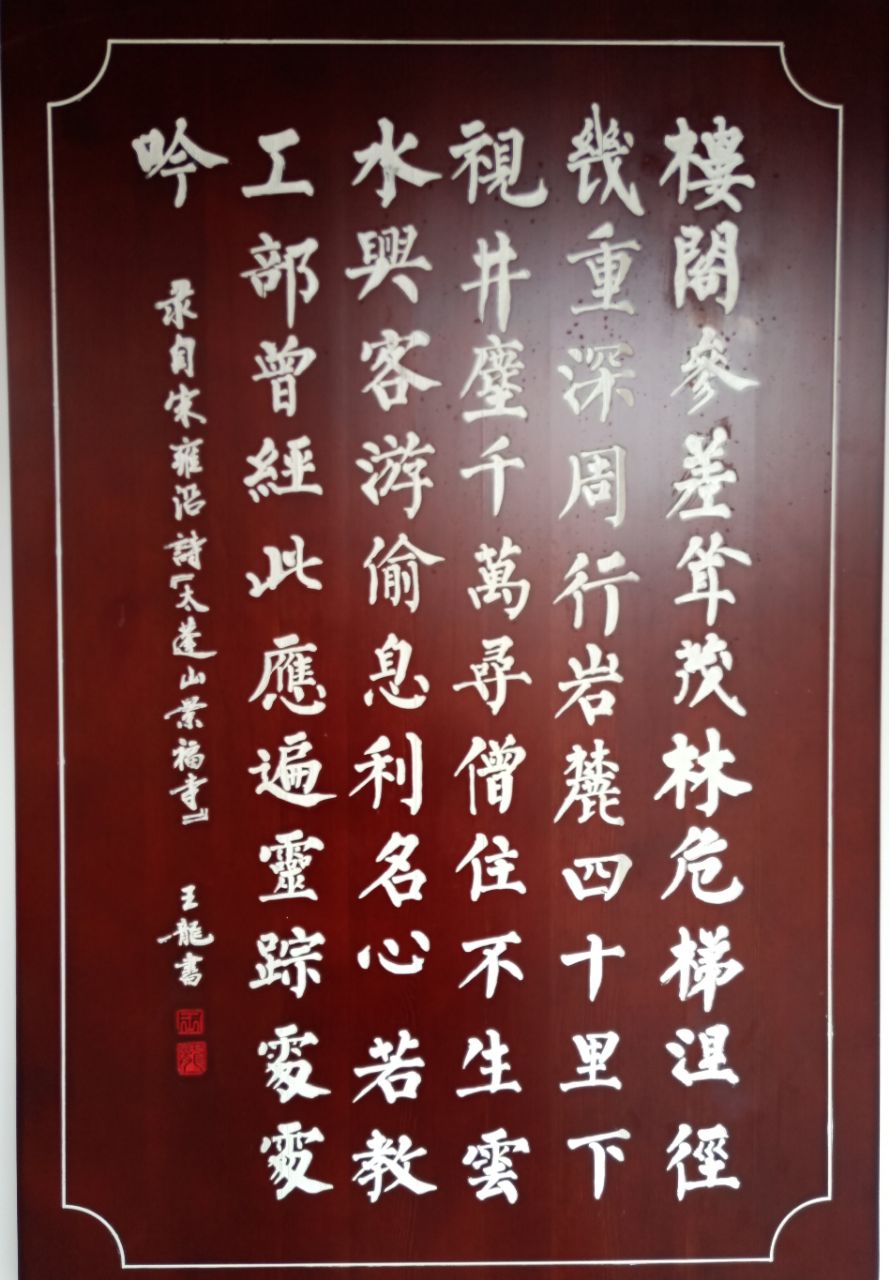 樓閣參差耸茂林危梯浥徑
幾重深周行岩麓四十里下
視井塵千萬尋僧住不生雲
水興客游偷息利名心若教
工部曾經此應遍靈踪處處
吟
录自宋雍沿詩『太蓬山景福寺』
王龍書